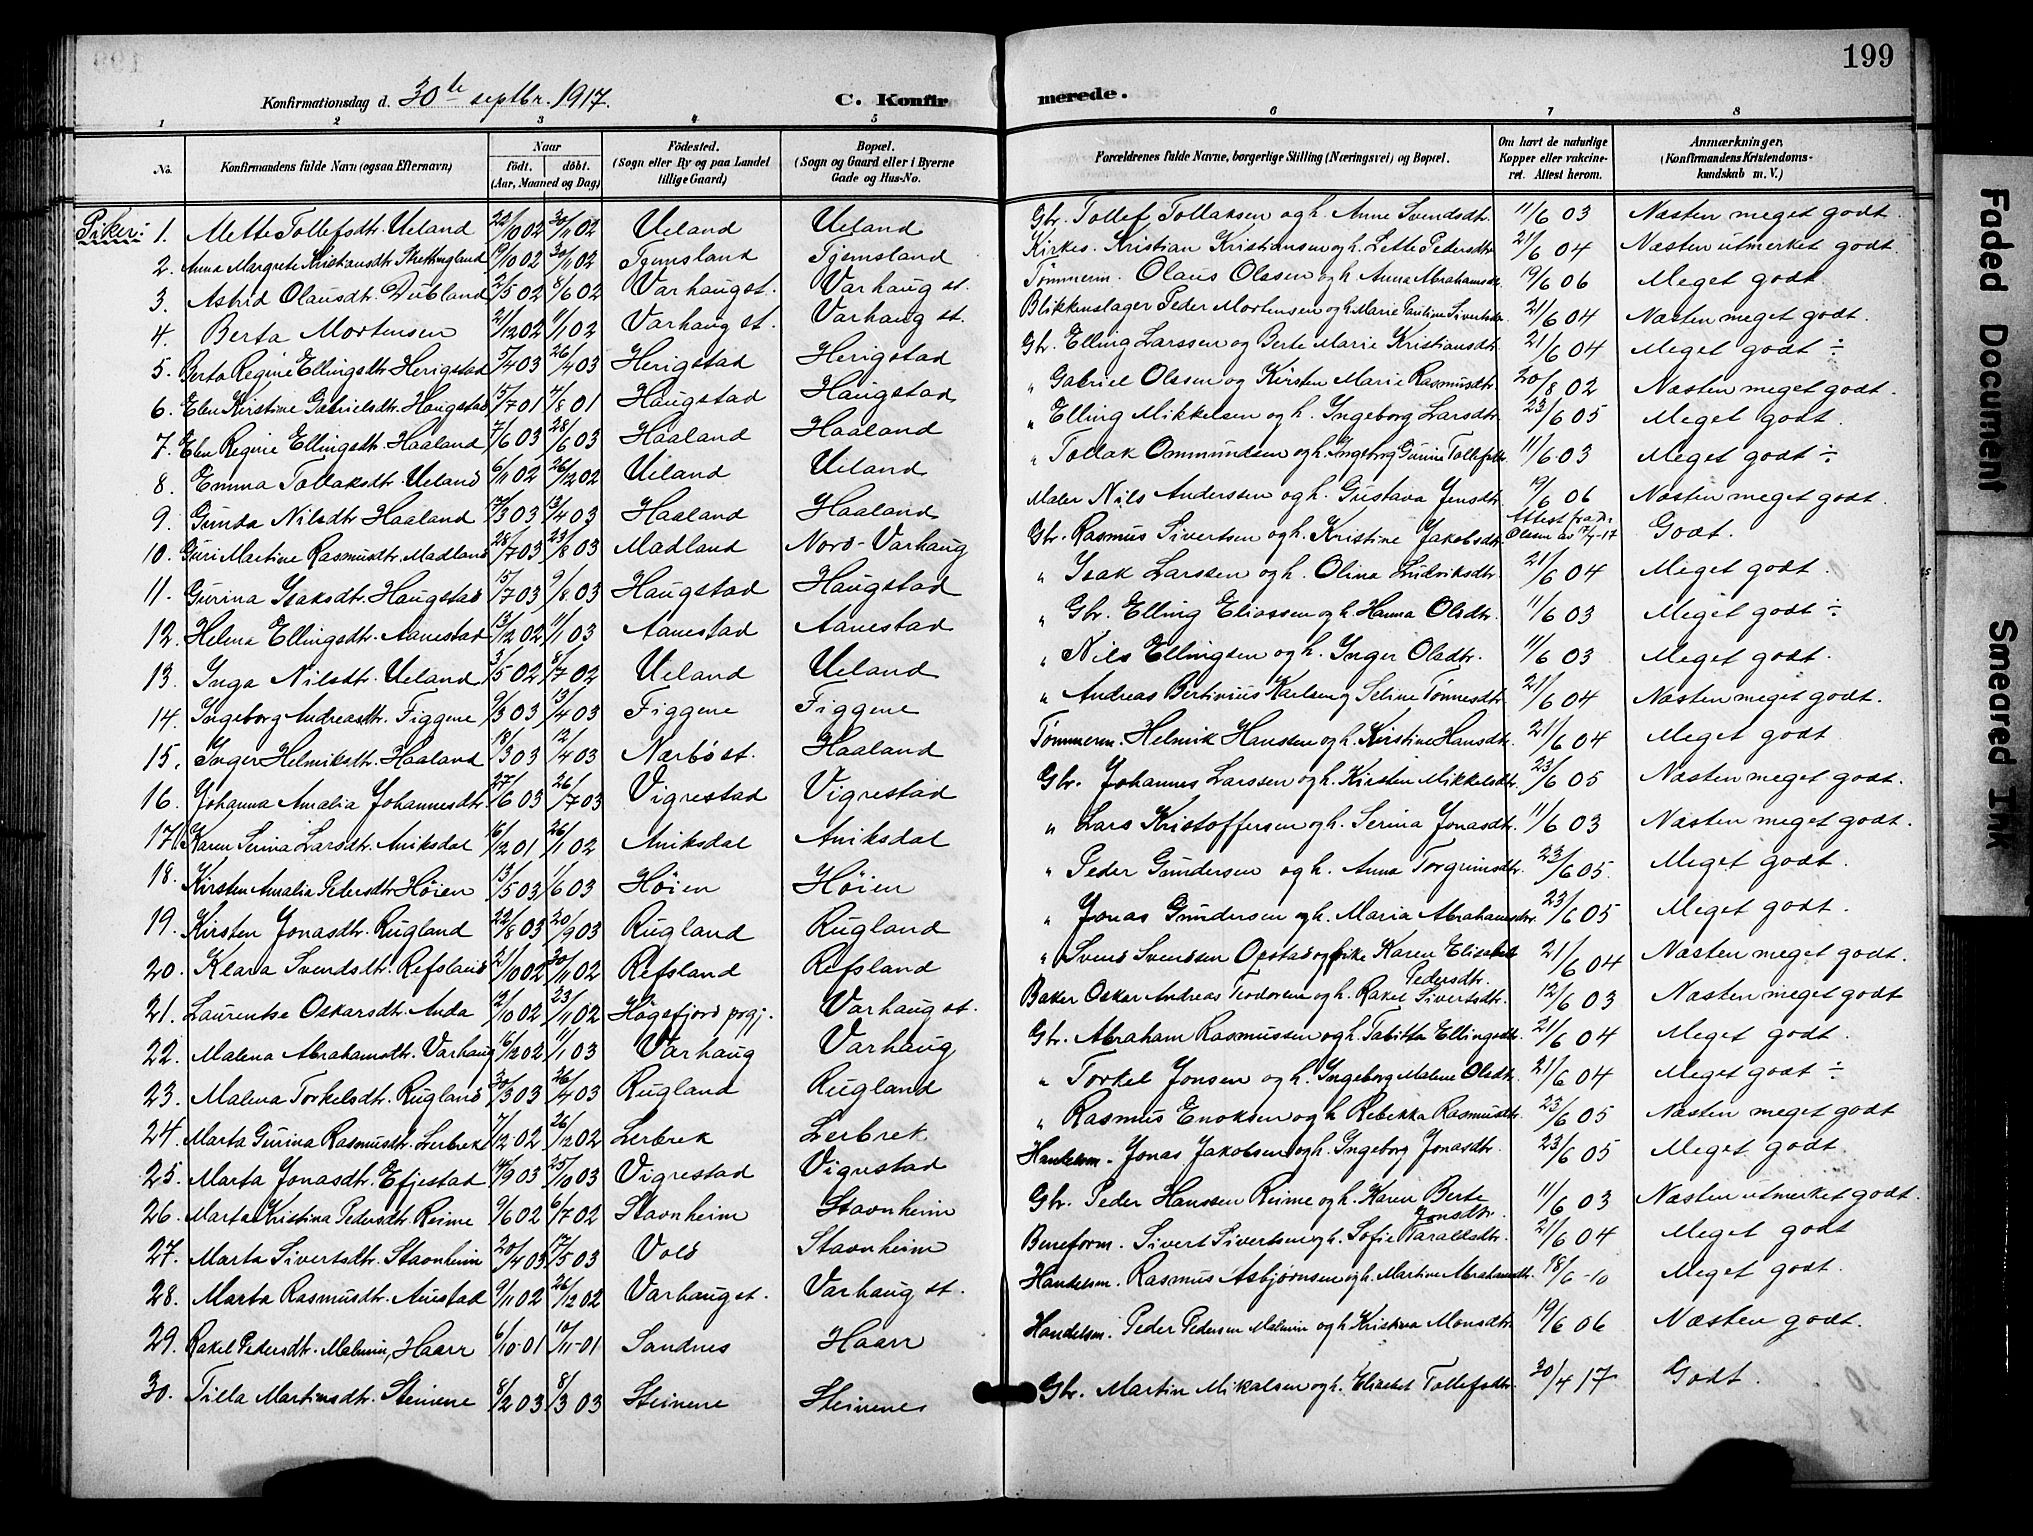 199
Konfirmationsdag d. 30te septbr. 1917. C. Konfirmerede.
1 2 3 4 5 6 7 8
No. Konfirmandens fulde Navn (ogsaa Efternavn) Naar Födt. döbt. (Aar, Maaned og Dag) Födested. (Sogn eller By og paa Landet tillige Gaard) Bopæl. (Sogn og Gaard eller i Byerne Gade og Hus-No. Forældrenes fulde Navne, borgerlige Stilling (Næringsvei) og Bopæl. Om havt de naturlige Kopper eller vakcineret. Attest herom. Anmærkninger, (Konfirmandens Kristendomskundskab m. V.)
Piker: 1. Mette Tollefsdtr. Ueland 22/10 02 30/11 02 Ueland Ueland Gbr. Tollef Tollaksen og h. Anne Svendsdtr. 11/6 03 Næsten meget godt.
2. Anna Margrete Kristiansdtr. Skretting­land 19/10 02 30/11 02 Tjemsland Tjemsland Kirkes. Kristian Kristiansen og h. Lette Pedersdtr. 21/6 04 Næsten utmerket godt.
3. Astrid Olausdtr. Dubland 2/5 02 8/6 02 Varhaug st. Varhaug st. Tømmerm. Olaus Olssen og h. Anna Abrahamsdtr. 19/6 06 Meget godt.
4. Berta Mortensen 21/12 02 1/1 02 Varhaug st. Varhaug st. Blikkenslager Peder Mortensen og h. Marie Pauline Sivertsdtr. 21/6 04 Næsten meget godt.
5. Berta Regine Ellingsdtr. Herigstad 5/4 03 26/4 03 Herigstad Herigstad Gbr. Elling Larssen og Berte Marie Kristiansdtr. 21/6 04 Meget godt ÷
6. Elen Kirstine Gabrielsdtr. Haugstad 15/7 01 4/8 01 Haugstad Haugstad " Gabriel Olssen og Kirsten Marie Rasmusdtr. 20/8 02 Næsten meget godt.
7. Elen Regine Ellingsdtr. Haaland 7/6 03 28/6 03 Haaland Haaland " Elling Mikkelsen og h. Ingeborg Larsdtr. 23/6 05 Meget godt.
8. Emma Tollaksdtr. Ueland 6/11 02 26/12 02 Ueland Ueland " Tollak Ommundsen og h. Ingeborg Gurine Tollefsdtr. 11/6 03 Meget godt ÷
9. Gunda Nilsdtr. Haaland 17/3 03 13/4 03 Haaland Haaland Maler Nils Anderssen og h. Gustava Jensdtr. 19/6 06 Næsten meget godt.
10. Guri Martine Rasmusdtr. Madland 28/7 03 23/8 03 Madland Nord-Varhaug Gbr. Rasmus Sivertsen og h. Kristine Jakobsdtr. Attest fra dr. Olsen av 17/7-17 Godt.
11. Gurina Isaksdtr. Haugstad 15/7 03 9/8 03 Haugstad Haugstad " Isak Larssen og h. Olina Ludviksdtr. 21/6 04 Meget godt.
12. Helena Ellingsdtr. Aanestad 13/12 02 11/1 03 Aanestad Aanestad " Gbr. Elling Eliassen og h. Hanna Olsdtr. 11/6 03 Meget godt ÷
13. Inga Nilsdtr. Ueland 3/5 02 8/7 02 Ueland Ueland " Nils Ellingsen og h. Inger Olsdtr. 11/6 03 Meget godt.
14. Ingeborg Andreasdtr. Figgene 9/3 03 13/4 03 Figgene Figgene " Andreas Bertinius Karlsen og Seline Tønnesdtr. 21/6 04 Næsten meget godt.
15. Inger Helmiksdtr. Haaland 18/3 03 12/4 03 Nærbö st. Haaland Tømmerm. Helmik Hanssen og h. Kirstine Hansdtr. 21/6 04 Meget godt.
16. Johanna Amalia Johannesdtr. 27/6 03 26/7 03 Vigrestad Vigrestad Gbr. Johannes Larssen og h. Kirsten Mikkelsdtr. 23/6 05 Næsten meget godt.
17. Karen Serina Larsdtr. Aniksdal 16/12 01 26/1 02 Aniksdal Aniksdal " Lars Kristoffersen og h. Serina Jonasdtr. 11/6 03 Næsten meget godt.
18. Kirsten Amalia Pedersdtr. Høien 13/5 03 1/6 03 Høien Høien " Peder Gundersen og h. Anna Torgrimsdtr. 23/6 05. Meget godt.
19. Kirsten Jonasdtr. Rugland 22/8 03 20/9 03 Rugland Rugland " Jonas Gundersen og h. Maria Abrahamsdtr. 23/6 05 Meget godt.
20. Klara Svendsdtr. Refsland 21/10 02 30/11 02 Refsland Refsland " Svend Svendsen Opstad og frke Karen Elisabet Pedersdtr. 21/6 04 Næsten meget godt.
21. Laurentse Oskarsdtr. Anda 12/10 02 23/11 02 Högsfjord prgj. Varhaug st. Baker Oskar Andreas Teodorsen og h. Rakel Sivertsdtr. 12/6 03 Næsten meget godt
22. Malena Abrahamsdtr. Varhaug 16/12 02 11/1 03 Varhaug Varhaug Gbr. Abraham Rasmussen og h. Tabitta Ellingsdtr. 21/6 04 Meget godt.
23. Malena Torkelsdtr. Rugland 30/3 03 26/4 03 Rugland Rugland " Torkel Jonsen og h. Ingeborg Malene Olsdtr. 21/6 04 Meget godt ÷
24. Marta Gurina Rasmusdtr. Lerbrek 7/12-02 26/12 02 Lerbrek Lerbrek " Rasmus Enoksen og h Rebekka Rasmusdtr. 23/6 05 Næsten meget godt
25. Marta Jonasdtr. Efjestad 14/9 03 25/10 03 Vigrestad Vigrestad Handelsm. Jonas Jakobsen og h. Ingeborg Jonasdtr. 23/6 05 Meget godt.
26. Marta Kristina Pedersdtr. Reime 9/6 02 6/7 02 Stavnheim Stavnheim Gbr. Peder Hanssen Reime og h. Karen Berte Jonsdtr. 11/6 03 Næsten utmerket godt.
27. Marta Sivertsdtr. Stavnheim 20/4 03 17/5 03 Vold Stavnheim Beneform. Sivert Sivertsen og h. Sofie Taraldsdtr. 21/6 04 Meget godt
28. Marta Rasmusdtr. Auestad 9/11 02 26/12 02 Varhaug st. Varhaug st. Handelsm. Rasmus Asbjørnsen og h. Martine Abrahamsdtr. 18/6-10 Meget godt.
29. Rakel Pedersdtr. Malmin, Haarr 6/10-01 10/11-01 Sandnes Haarr Handelsm. Peder Pedersen Malmin og h Kristina Monsdtr. 19/6 06 Næsten godt.
30. Tilla Martinsdtr. Steinene 8/2 03 8/3 03 Steinene Steinenes Gbr. Martin Mikalsen og h. Elisabet Tollefsdtr. 30/4 17 Godt.
Faded Document
Smeared Ink